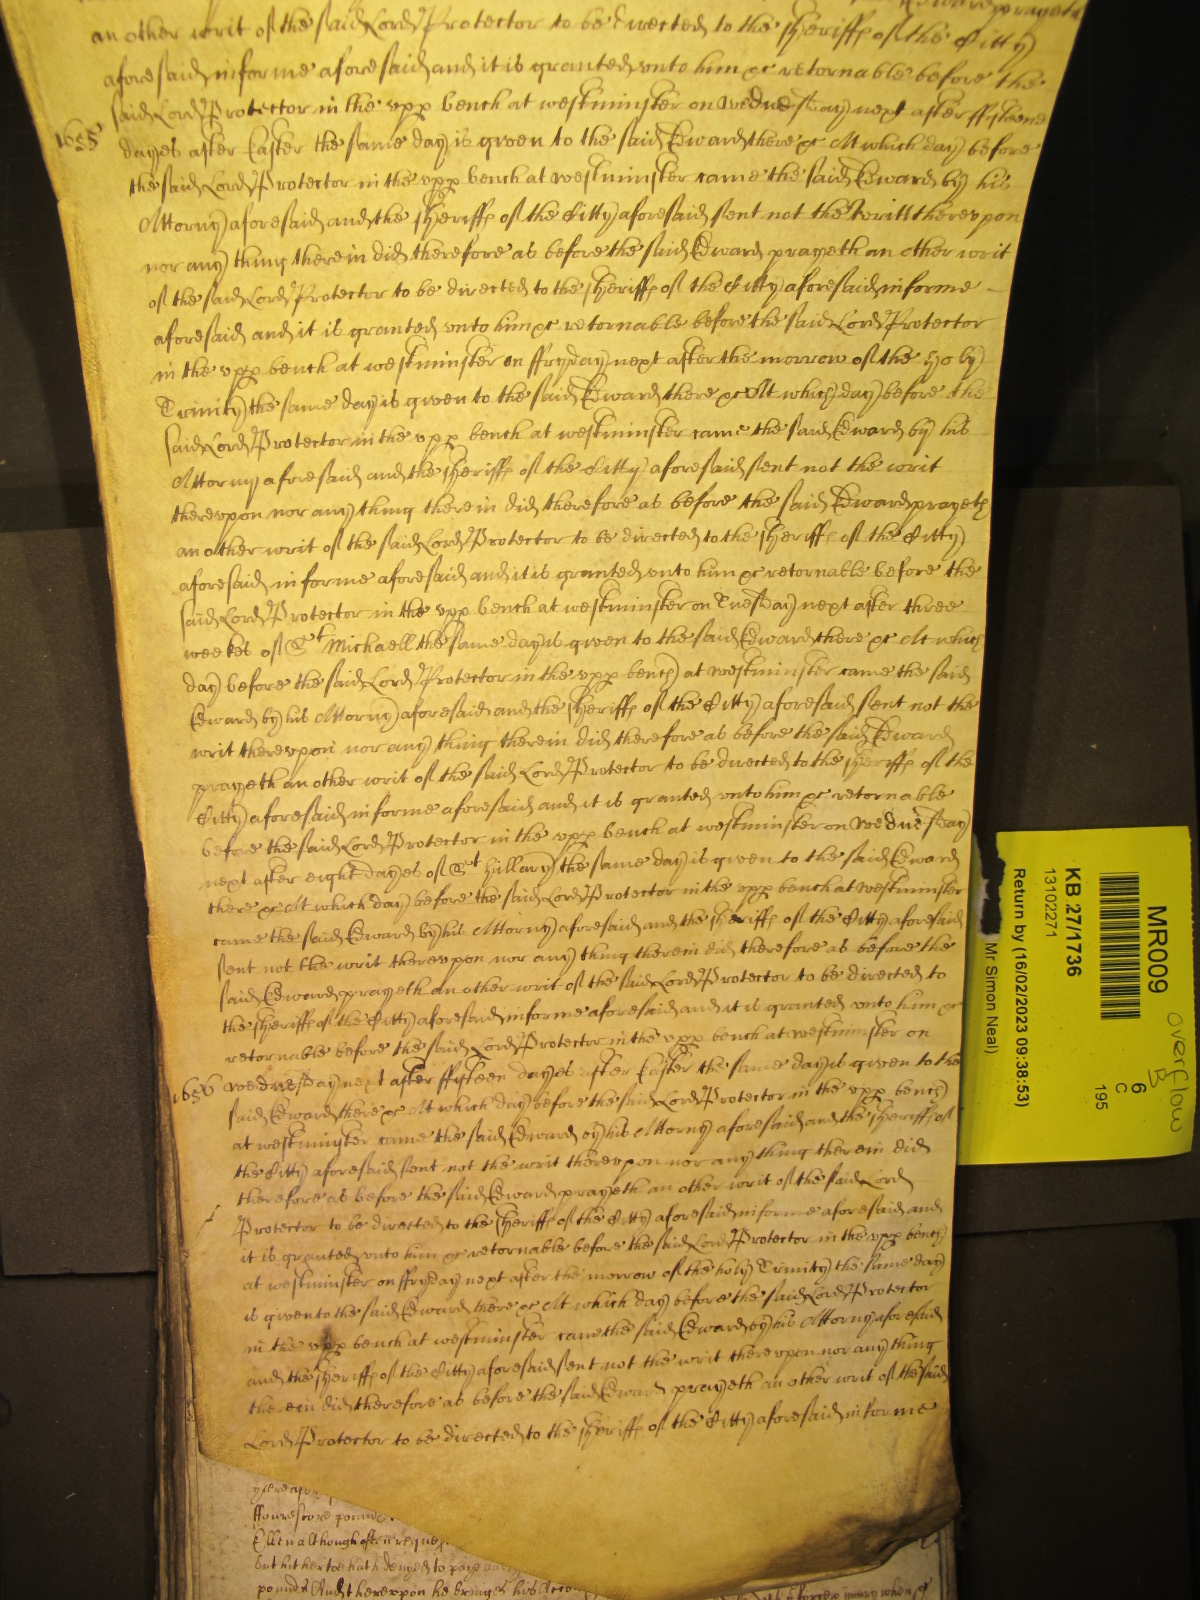 Edward prayeth
an other writ of the said Lord Protector to be directed to the Sheriffe of the Citty
aforesaid in forme aforesaid and it is granted vnto him &c retornable before the
said Lord Protector in the vpp bench at westminster on Wednesday next after ffifteene
1655 dayes after Easter the same day is given to the said Edward there &c At which day before
the said Lord Protector in the vpp bench at westminster came the said Edward by his
Attorny aforesaid and the Sheriffe of the Citty aforesaid sent not the writt therevpon
nor any thing therein did therefore as before the said Edward prayeth an other writ
of the said Lord Protector to be directed to the Sheriffe of the Citty aforesaid in forme
aforesaid and it is granted vnto him &c retornable before the said Lord Protector
in the vpp bench at westminster on ffryday next after the morrow of the holy
Trinity the same day is given to the said Edward there &c At which day before the
said Lord Protector in the vpp bench at westminster came the said Edward by his
Attorny aforesaid and the Sheriffe of the Citty aforesaid sent not the writ
therevpon nor any thing therein did therefore as before the said Edward prayeth
an other writ of the said Lord Protector to be directed to the Sheriffe of the Citty
aforesaid in forme aforesaid and it is granted vnto him &c retornable before the
said Lord Protector in the vpp bench at westminster on Tuesday next after three
weekes of St Michaell the same day is given to the said Edward there &c At which
day before the said Lord Protector in the vpp bench at westminster came the said
Edward by his Attorny aforesaid and the Sheriffe of the Citty aforesaid sent not the
writ therevpon nor any thing therein did therefore as before the said Edward
prayeth an other writ of the said Lord Protector to be directed to the Sheriffe of the
Citty aforesaid in forme aforesaid and it is granted vnto him &c retornable
before the said Lord Protector in the vpp bench at westminster on Wednesday
next after eight dayes of St Hillary the same day is given to the said Edward
there &c At which day before the said Lord Protector in the vpp bench at westminster
came the said Edward by his Attorny aforesaid and the Sheriffe of the Citty aforesaid
sent not the writ therevpon nor any thing therein did therefore as before the
said Edward prayeth an other writ of the said Lord Protector to be directed to
the Sheriffe of the Citty aforesaid in forme aforesaid and it is granted vnto him &c
retornable before the said Lord Protector in the vpp bench at westminster on
1656 wednesday next after ffifteen dayes after Easter the same day is given to the
said Edward there &c At which day before the said Lord Protector in the vpp bench
at westminster came the said Edward by his Attorny aforesaid and the Sheriffe of
the Citty aforesaid sent not the writ therevpon nor any thing therein did
therefore as before the said Edward prayeth an other writ of the said Lord
Protector to be directed to the Sheriffe of the Citty aforesaid in forme aforesaid and
it is granted vnto him &c retornable before the said Lord Protector in the vpp bench
at westminster on ffryday next after the morrow of the holy Trinity the same day
is given to the said Edward there &c At which day before the said Lord Protector
in the vpp bench at westminster came the said Edward by his Attorny aforesaid
and the Sheriffe of the Citty aforesaid sent not the writ therevpon nor any thing
therein did therefore as before the said Edward prayeth an other writ of the said
Lord Protector to be directed to the Sheriffe of the Citty aforesaid in forme
ffourescore
Ellen although often
but hitherto hath denyed to pay
pounds And therevpon he bringes his
MR009
KB 27/1736
13102271
Return by (16/02/2023 09:38:53)
Mr Simon Neal)
6
C
195
Overflow
B